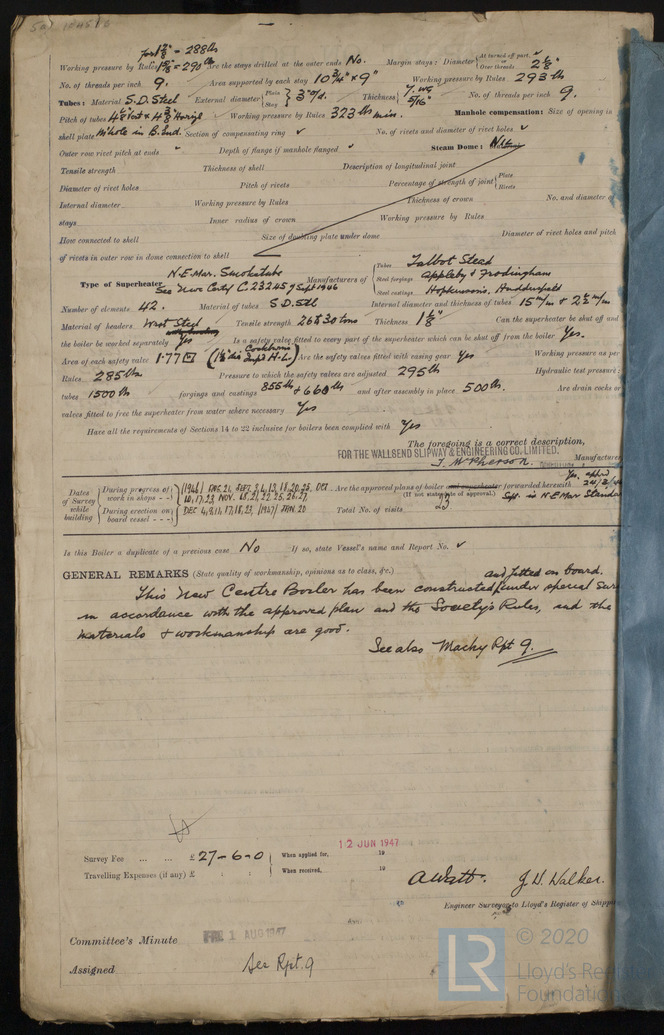 for 1 7/8" = 288 lb
Working pressure by Rules 1 5/8" = 290 lb Are the stays drilled at the outer ends No. Margin stays: Diameter { At turned off part, ✓ Over threads 2 1/8"
No. of threads per inch 9. Area supported by each stay 10 3/4" × 9" Working pressure by Rules 293 lb
Tubes: Material S.D. Steel External diameter { Plain Stay } 3" o/d. Thickness { 7 WG 5/16" No. of threads per inch 9.
Pitch of tubes 4 1/8" Vert × 4 3/8" Horizl Working pressure by Rules 323 lb min. Manhole compensation: Size of opening in
shell plate M'hole in B. End. Section of compensating ring ✓ No. of rivets and diameter of rivet holes ✓
Outer row rivet pitch at ends ✓ Depth of flange if manhole flanged ✓ Steam Dome: Material
Tensile strength Thickness of shell Description of longitudinal joint
Diameter of rivet holes Pitch of rivets Percentage of strength of joint { Plate Rivets
Internal diameter Working pressure by Rules Thickness of crown No. and diameter of
stays Inner radius of crown Working pressure by Rules
How connected to shell Size of doubling plate under dome Diameter of rivet holes and pitch
of rivets in outer row in dome connection to shell
Type of Superheater N.E. Mar. Smoketube See Nwc Certf C.23245 9 Sept 1946 Manufacturers of { Tubes Talbot Stead Steel forgings Appleby & Frodingham Steel castings Hopkinsons. Huddersfield
Number of elements 42. Material of tubes S D. Stl Internal diameter and thickness of tubes 15 m/m & 2 1/2 m/m
Material of headers Wrot Steel Tensile strength 26 to 30 tons Thickness 1 1/8" Can the superheater be shut off and
the boiler be worked separately Yes Is a safety valve fitted to every part of the superheater which can be shut off from the boiler Yes.
Area of each safety valve 1.77 □" (1 1/2" dia Cockburns Impd H.L.) Are the safety valves fitted with easing gear Yes Working pressure as per
Rules 285 lbs Pressure to which the safety valves are adjusted 295 lb Hydraulic test pressure:
tubes 1500 lb forgings and castings 855 lb & 660 lb and after assembly in place 500 lb. Are drain cocks or
valves fitted to free the superheater from water where necessary Yes
Have all the requirements of Sections 14 to 22 inclusive for boilers been complied with Yes
The foregoing is a correct description,
FOR THE WALLSEND SLIPWAY & ENGINEERING CO. LIMITED.
J. McPherson. Manufacturer
Dates of Survey while building { During progress of work in shops - - } 1946/ AUG. 21, SEPT. 3, 6, 13, 18, 20, 25, OCT. 10, 17, 23, NOV. 4, 8, 21, 22, 25, 26, 27. Are the approved plans of boiler and superheater forwarded herewith Yes, appvd 24/2/
(If not state date of approval.) Spht. is N.E Mar Standa
{ During erection on board vessel - - - } DEC 4, 9, 11, 17, 18, 23, /1947/ JAN. 20 Total No. of visits
Is this Boiler a duplicate of a previous case No If so, state Vessel's name and Report No. ✓
GENERAL REMARKS (State quality of workmanship, opinions as to class, &c.)
and fitted on board.
This New Centre Boiler has been constructed under special Sur
in accordance with the approved plan and the Society's Rules, and the
materials & workmanship are good.
See also Machy Rpt 9.
12 JUN 1947
Survey Fee ... ... £ 27-6-0 When applied for, 19
Travelling Expenses (if any) £ : : When received, 19
A Watt. J. D. Walker.
Engineer Surveyor to Lloyd's Register of Shipp
Committee's Minute FRI. 1 AUG 1947
Assigned See Rpt. 9
LR © 2020
Lloyd's Register
Foundation